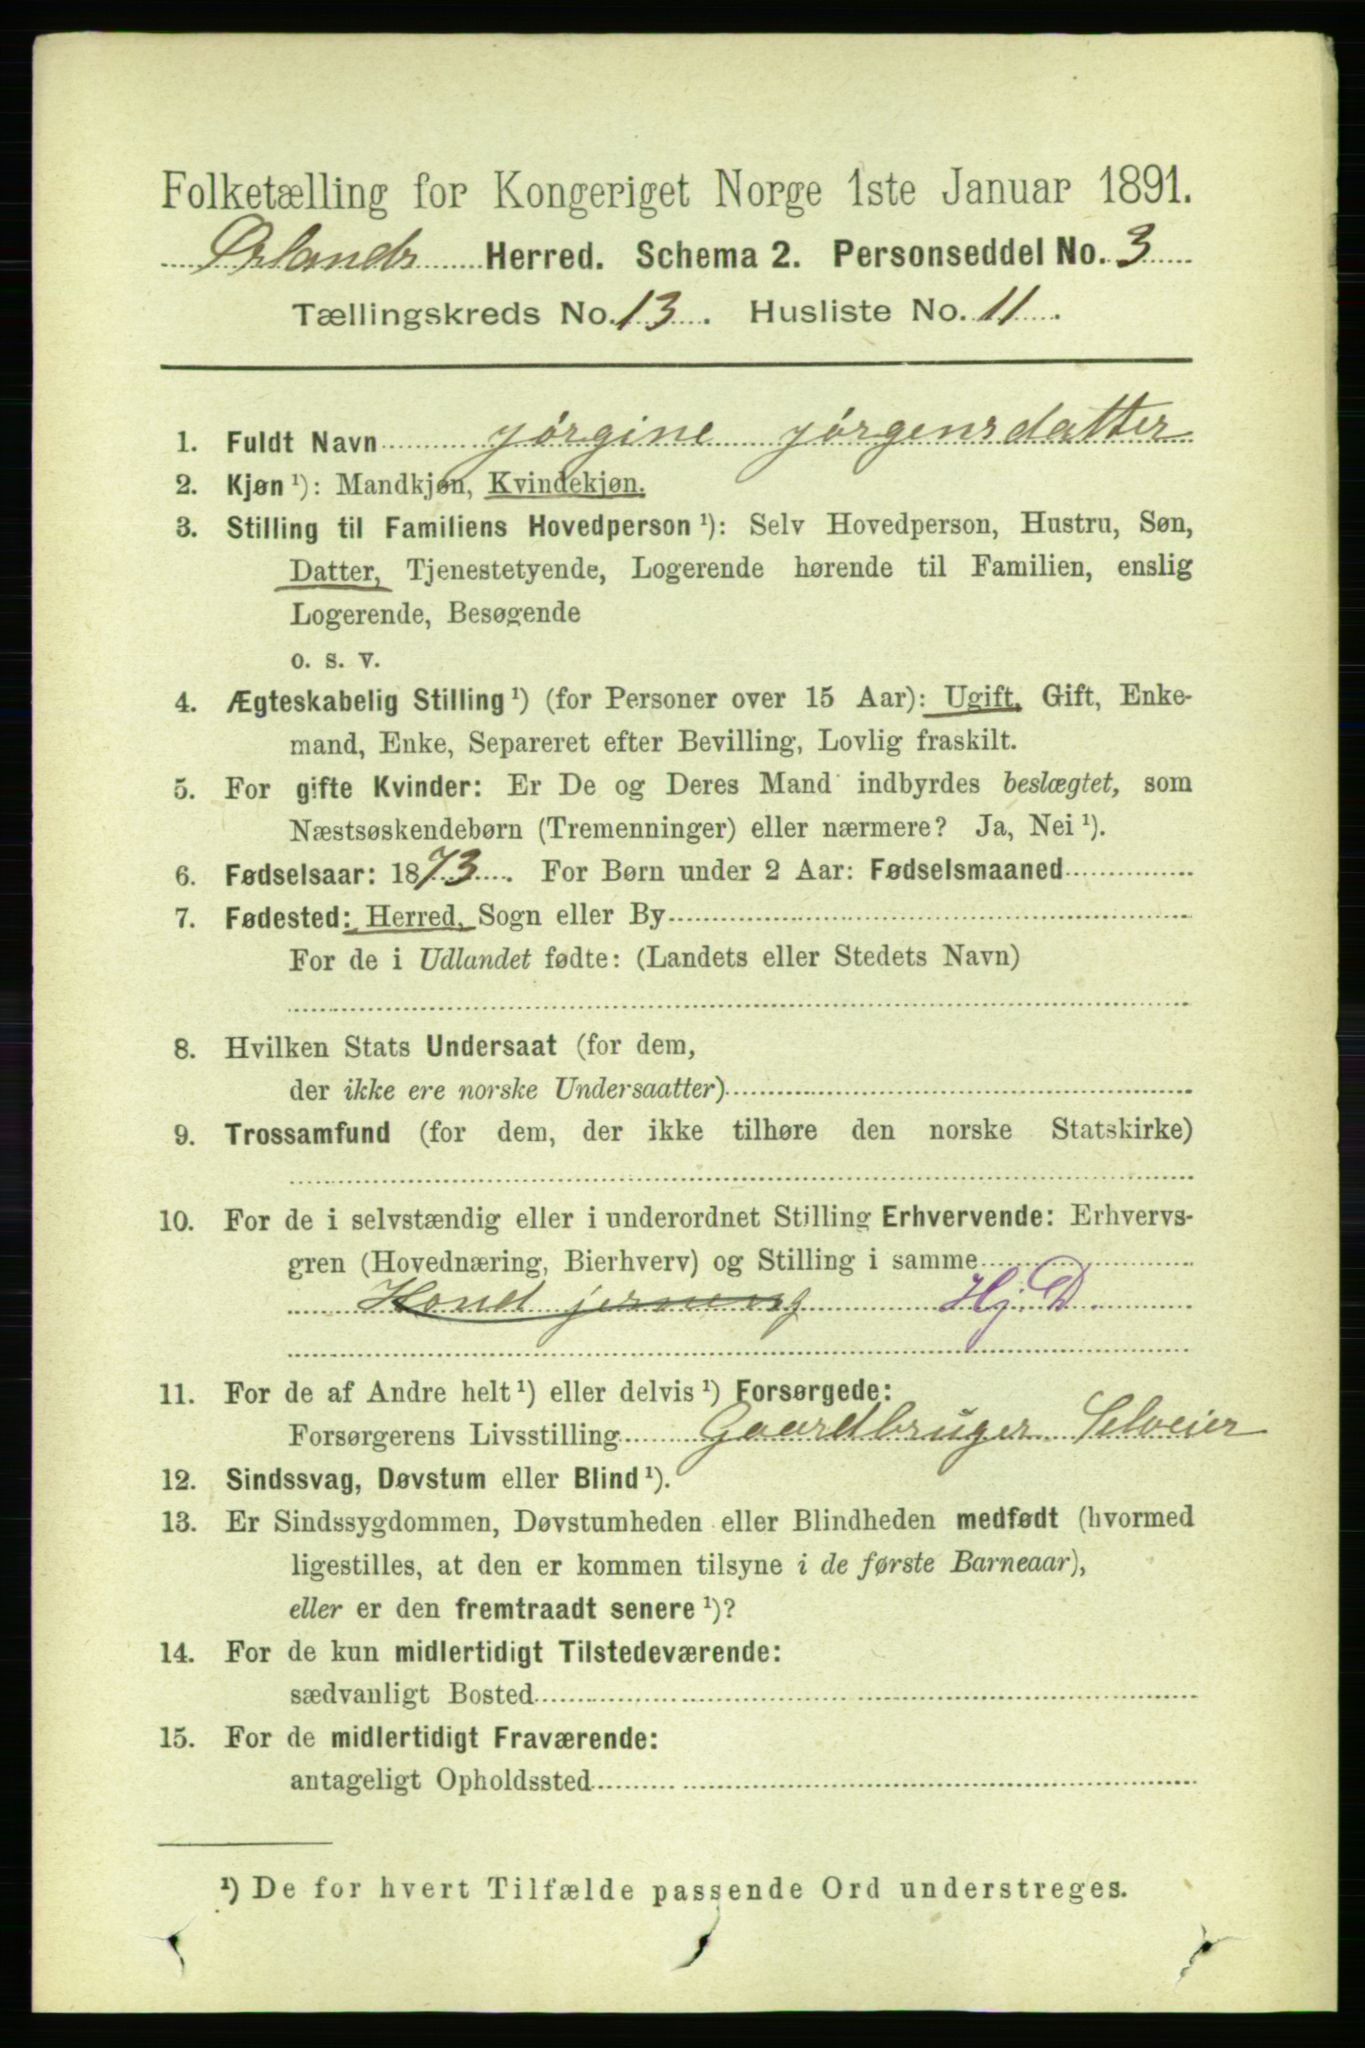 Folketælling for Kongeriget Norge 1ste Januar 1891.
Ørlands Herred. Schema 2. Personseddel No. 3
Tællingskreds No. 13. Husliste No. 11.
1. Fuldt Navn Jørgine Jørgensdatter
2. Kjøn ¹): Mandkjøn, Kvindekjøn.
3. Stilling til Familiens Hovedperson ¹): Selv Hovedperson, Hustru, Søn,
Datter, Tjenestetyende, Logerende hørende til Familien, enslig
Logerende, Besøgende
o. s. v.
4. Ægteskabelig Stilling ¹) (for Personer over 15 Aar): Ugift, Gift, Enke-
mand, Enke, Separeret efter Bevilling, Lovlig fraskilt.
5. For gifte Kvinder: Er De og Deres Mand indbyrdes beslægtet, som
Næstsøskendebørn (Tremenninger) eller nærmere? Ja, Nei ¹).
6. Fødselsaar: 1873. For Børn under 2 Aar: Fødselsmaaned
7. Fødested: Herred, Sogn eller By
For de i Udlandet fødte: (Landets eller Stedets Navn)
8. Hvilken Stats Undersaat (for dem,
der ikke ere norske Undersaatter)
9. Trossamfund (for dem, der ikke tilhøre den norske Statskirke)
10. For de i selvstændig eller i underordnet Stilling Erhvervende: Erhvervs-
gren (Hovednæring, Bierhverv) og Stilling i samme
Hj. D
11. For de af Andre helt ¹) eller delvis ¹) Forsørgede:
Forsørgerens Livsstilling Gaardbruger Selveier
12. Sindssvag, Døvstum eller Blind ¹).
13. Er Sindssygdommen, Døvstumheden eller Blindheden medfødt (hvormed
ligestilles, at den er kommen tilsyne i de første Barneaar),
eller er den fremtraadt senere ¹)?
14. For de kun midlertidigt Tilstedeværende:
sædvanligt Bosted
15. For de midlertidigt Fraværende:
antageligt Opholdssted
¹) De for hvert Tilfælde passende Ord understreges.